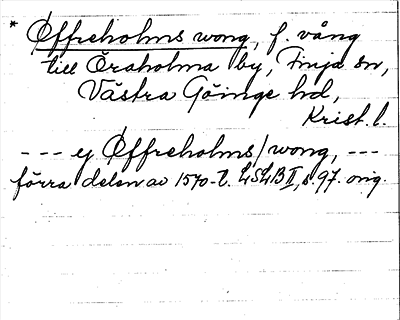 * Øffreholms wong, f. vång
till Öraholma by, Finja sn,
Västra Göinge hd,
Krist. l.
--- ej Øffreholms/wong, ---
förra delen av 1570-t. LSLB II, s. 97. orig.